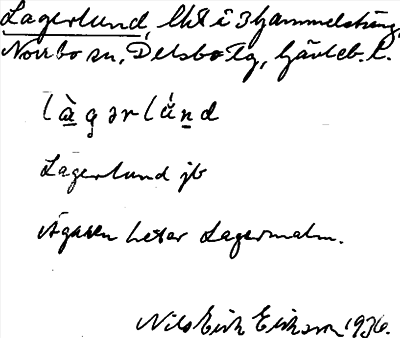 Lagerlund, lht i 3 Hammelsäng,
Norrbo sn, Delsbo tg, Gävleb. l.
làgərlánd
Lagerlund jb
Ägaren heter Lagermalm.
Nils Erik Eriksson 1936.